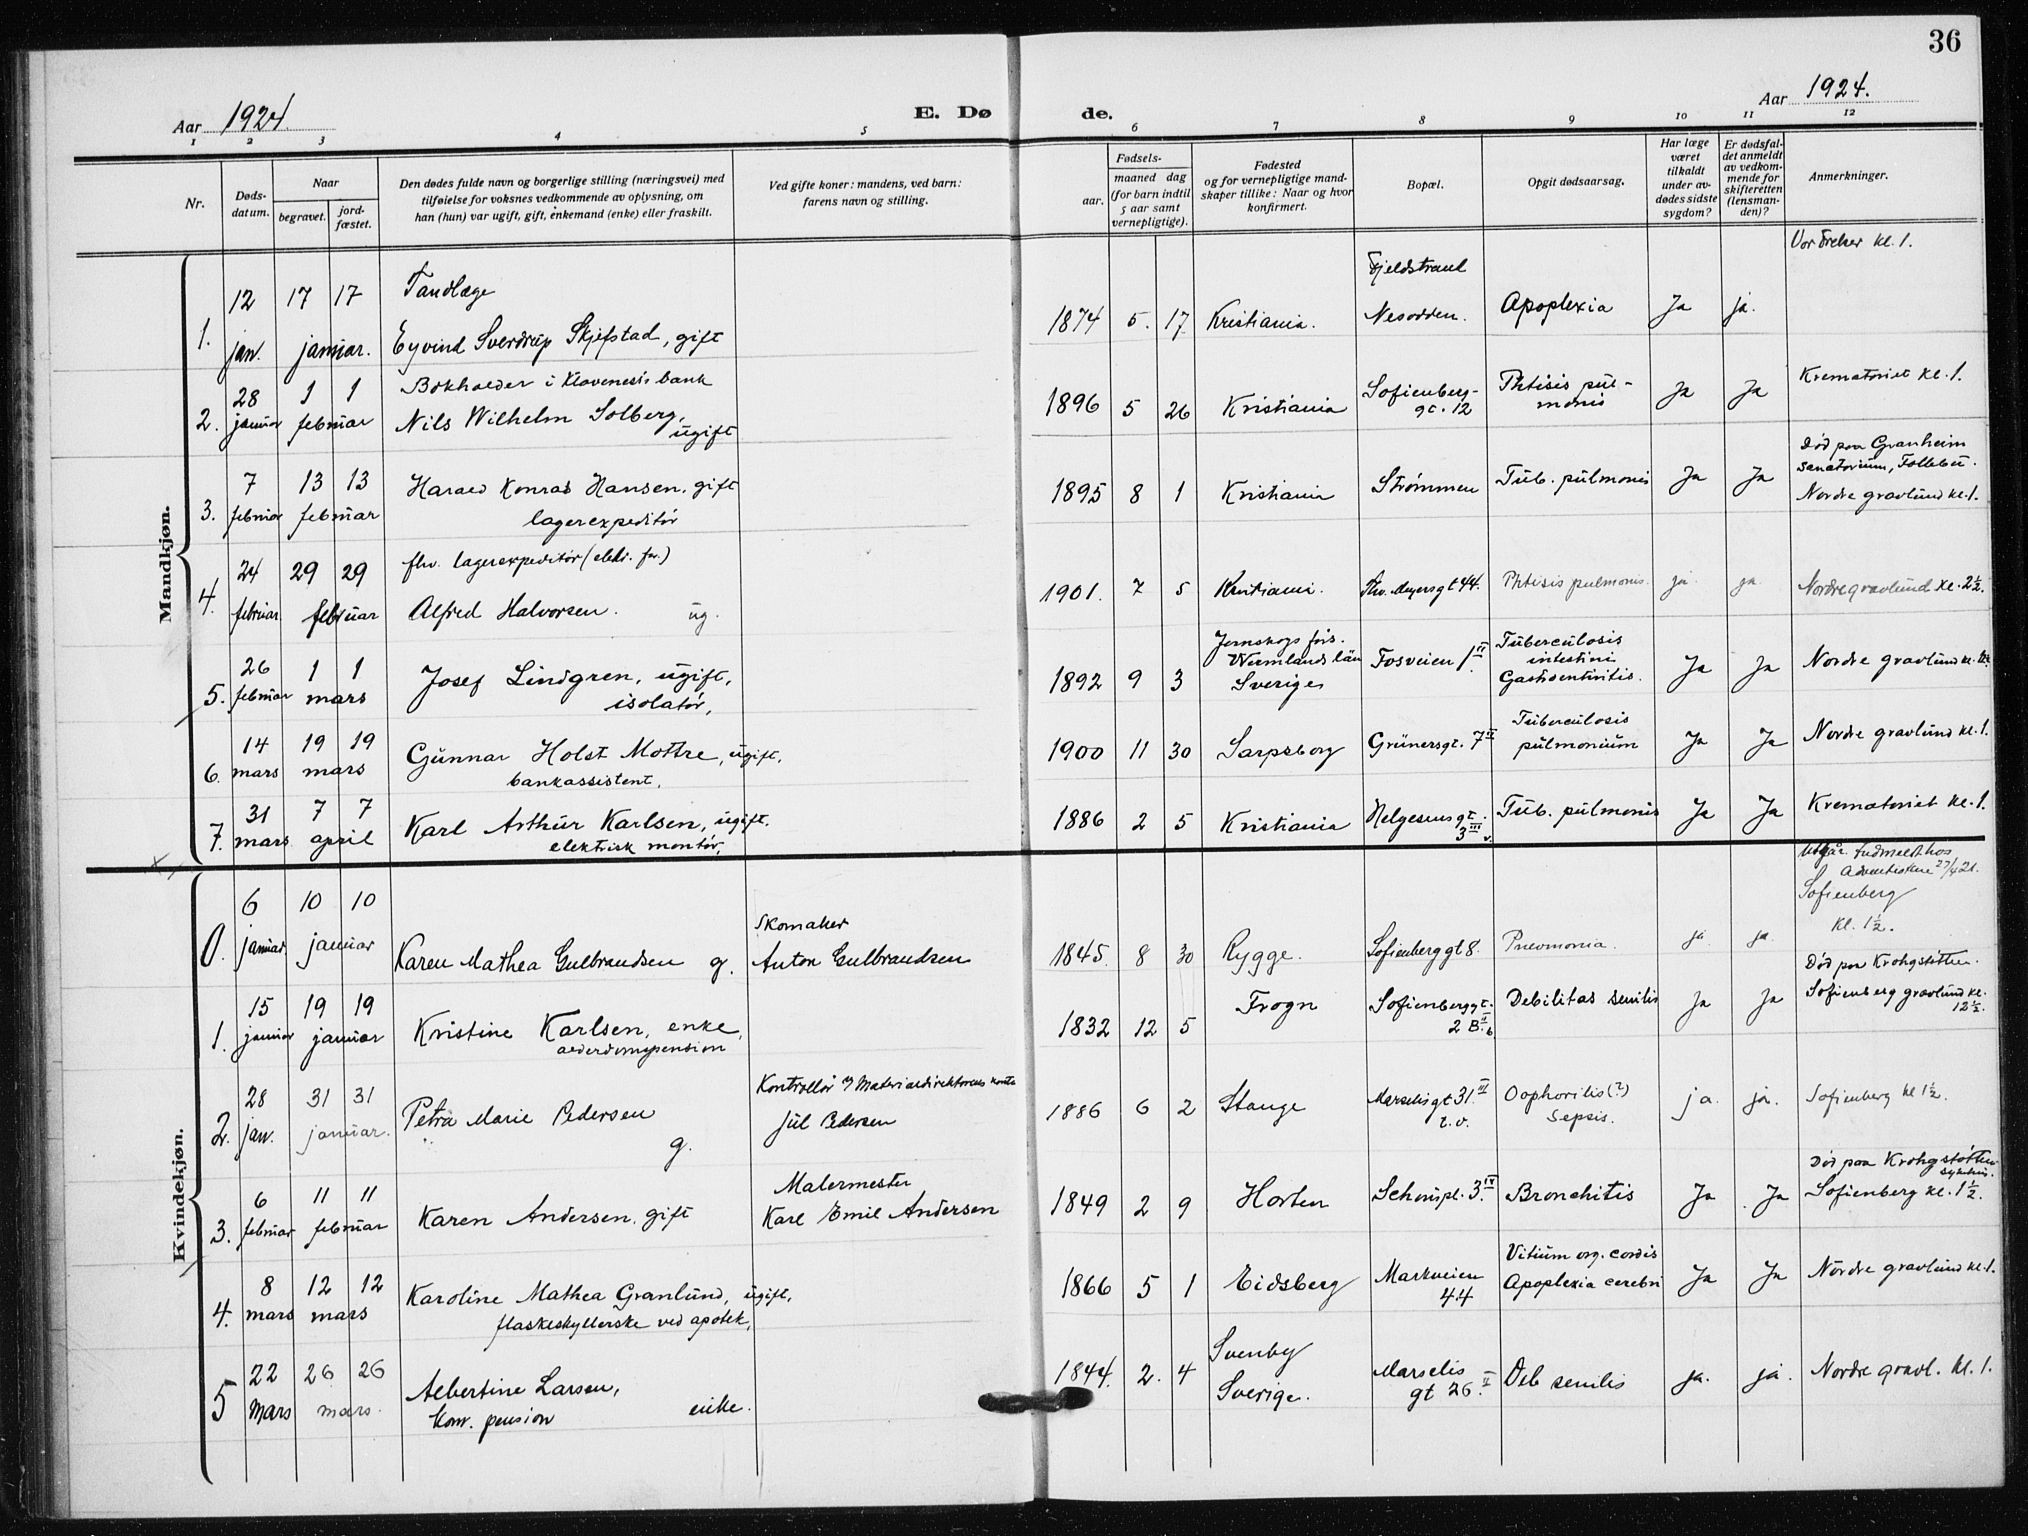 36
Aar 1924.
E. Dø
de.
Aar 1924.
1 2 3 4 5 6 7 8 9 10 11 12
Nr.
Døds-
datum.
Naar
begravet.
jord-
fæstet.
Den dødes fulde navn og borgerlige stilling (næringsvei) med
tilføielse for voksnes vedkommende av oplysning, om
han (hun) var ugift, gift, enkemand (enke) eller fraskilt.
Ved gifte koner: mandens, ved barn:
farens navn og stilling.
Fødsels-
aar.
maaned dag
(for barn indtil
5 aar samt
vernepligtige).
Fødested
og for vernepligtige mand-
skaper tillike: Naar og hvor
konfirmert.
Bopæl.
Opgit dødsaarsag.
Har læge
været
tilkaldt
under av-
dødes sidste
sygdom?
Er dødsfal-
det anmeldt
av vedkom-
mende for
skifteretten
(lensman-
den)?
Anmerkninger.
Mandkjøn.
Vor Frelser kl. 1.
12 17 17 Tandlæge Fjeldstrand
1. jan. januar. Eyvind Sverdrup Skjefstad, gift 1874 5. 17 Kristiania. Nesodden. Apoplexia Ja ja.
28 1 1 Bokholder i Klaveness's bank Sofienberg- Phtisis pul- Krematoriet kl. 1.
2. januar februar Nils Wilhelm Solberg, ugift 1896 5 26 Kristiania gt. 12 monis Ja Ja
Død paa Granheim
sanatorium, Follebu.
7 13 13 Harald Konrad Hansen, gift 1895 8 1 Kristiania Strømmen Tub. pulmonis Ja Ja Nordre gravlund kl. 1.
3. februar februar lagerexpeditør
24 29 29 fhv. lagerexpeditør
4. februar februar Alfred Halvorsen. ug. 1901. 7 5 Kristiania. Thv. Meyersgt 44. Phtisis pulmonis. ja. ja. Nordre gravlund kl. 2½.
Jernskogsförs. Tuberculosis
26 1 1 Josef Lindgren, ugift, Wermlands län Fosveien 1 II intestini Nordre gravlund kl.
5. februar mars isolatør, 1892 9 3 Sverige Gastroenteritis. Ja Ja
14 19 19 Gunnar Holst Mottre, ugift, Tuberculosis Nordre gravlund kl. 1.
6. mars mars bankassistent. 1900 11 30 Sarpsborg Grünersgt. 7 pulmonium Ja Ja
31 7 7 Karl Arthur Karlsen, ugift. 1886 2 5 Kristiania Helgesensgt. Tub. pulmonis Ja Ja Krematoriet kl. 1.
7. mars april elektrisk montør, 3 III v.
Kvindekjøn.
Utgår. Indmeldt hos
Adventistene 27/4 21.
6 10 10 Skomaker Sofienberg
kl. 1½.
0. januar januar Karen Mathea Gulbrandsen g. Anton Gulbrandsen 1845. 8 30 Rygge. Sofienberggt 8. Pneumonia. ja ja.
Død paa Krohgstøtten.
15 19 19 Frogn Sofienberggt. Debilitas senilis Ja Ja Sofienberg gravlund kl. 12½.
1. januar januar Kristine Karlsen, enke, 1832 12 5 2 B. II b
alderdomspension
28 31 31 Kontrollør v/ Materialdirektørens kontor
2. jan. januar. Petra Marie Pedersen g. Jul Pedersen 1886 6 2 Stange Marselisgt 31. II t.v. Oophoritis (?) Sepsis. ja. ja. Sofienberg kl 1½.
Død paa Krohgstøtten
sykehus.
6 11 11 Malermester
3. februar februar Karen Andersen, gift Karl Emil Andersen 1849 2 9 Horten Schouspl. 3. IV Bronchitis Ja Ja Sofienberg kl. 1½.
Vitium org. cordis
8 12 12 Karoline Mathea Granlund, ugift, 1866 5 1 Eidsberg Markveien Apoplexia cerebri Ja Ja Nordre gravlund kl. 1.
4. mars mars flaskeskyllerske ved apotek, 44
22 26 26 Svenby Marselis
5 mars mars. Albertine Larsen, 1844. 2. 4 Sverige. gt 26. II Deb senilis ja. ja. Nordre gravl. kl. 1.
Kom. pension enke.